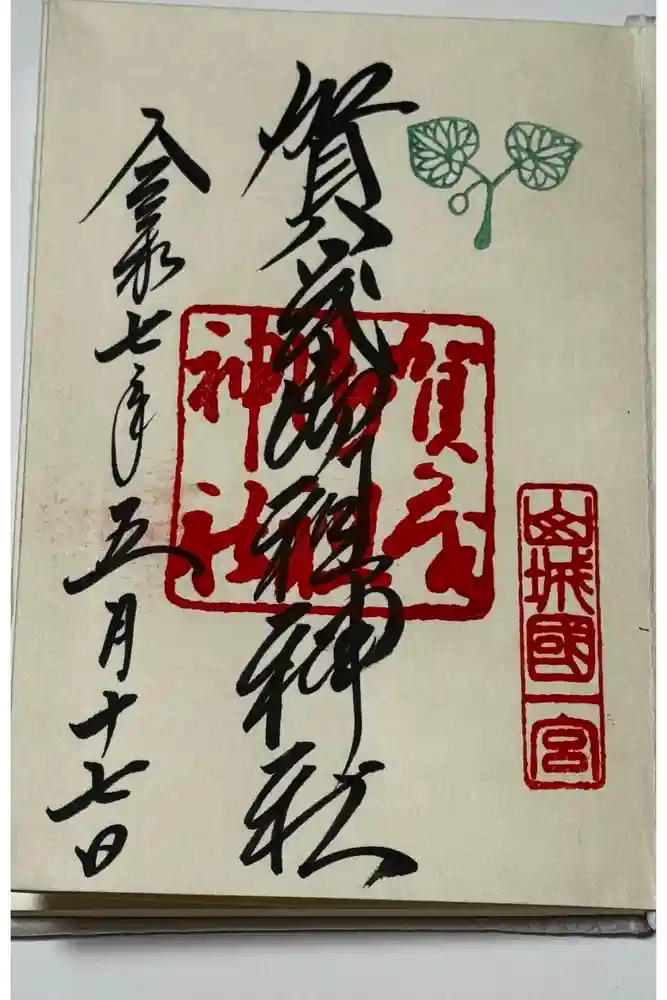 山城國一宮
賀茂御祖神社
賀茂御祖神社
令和七年五月十七日